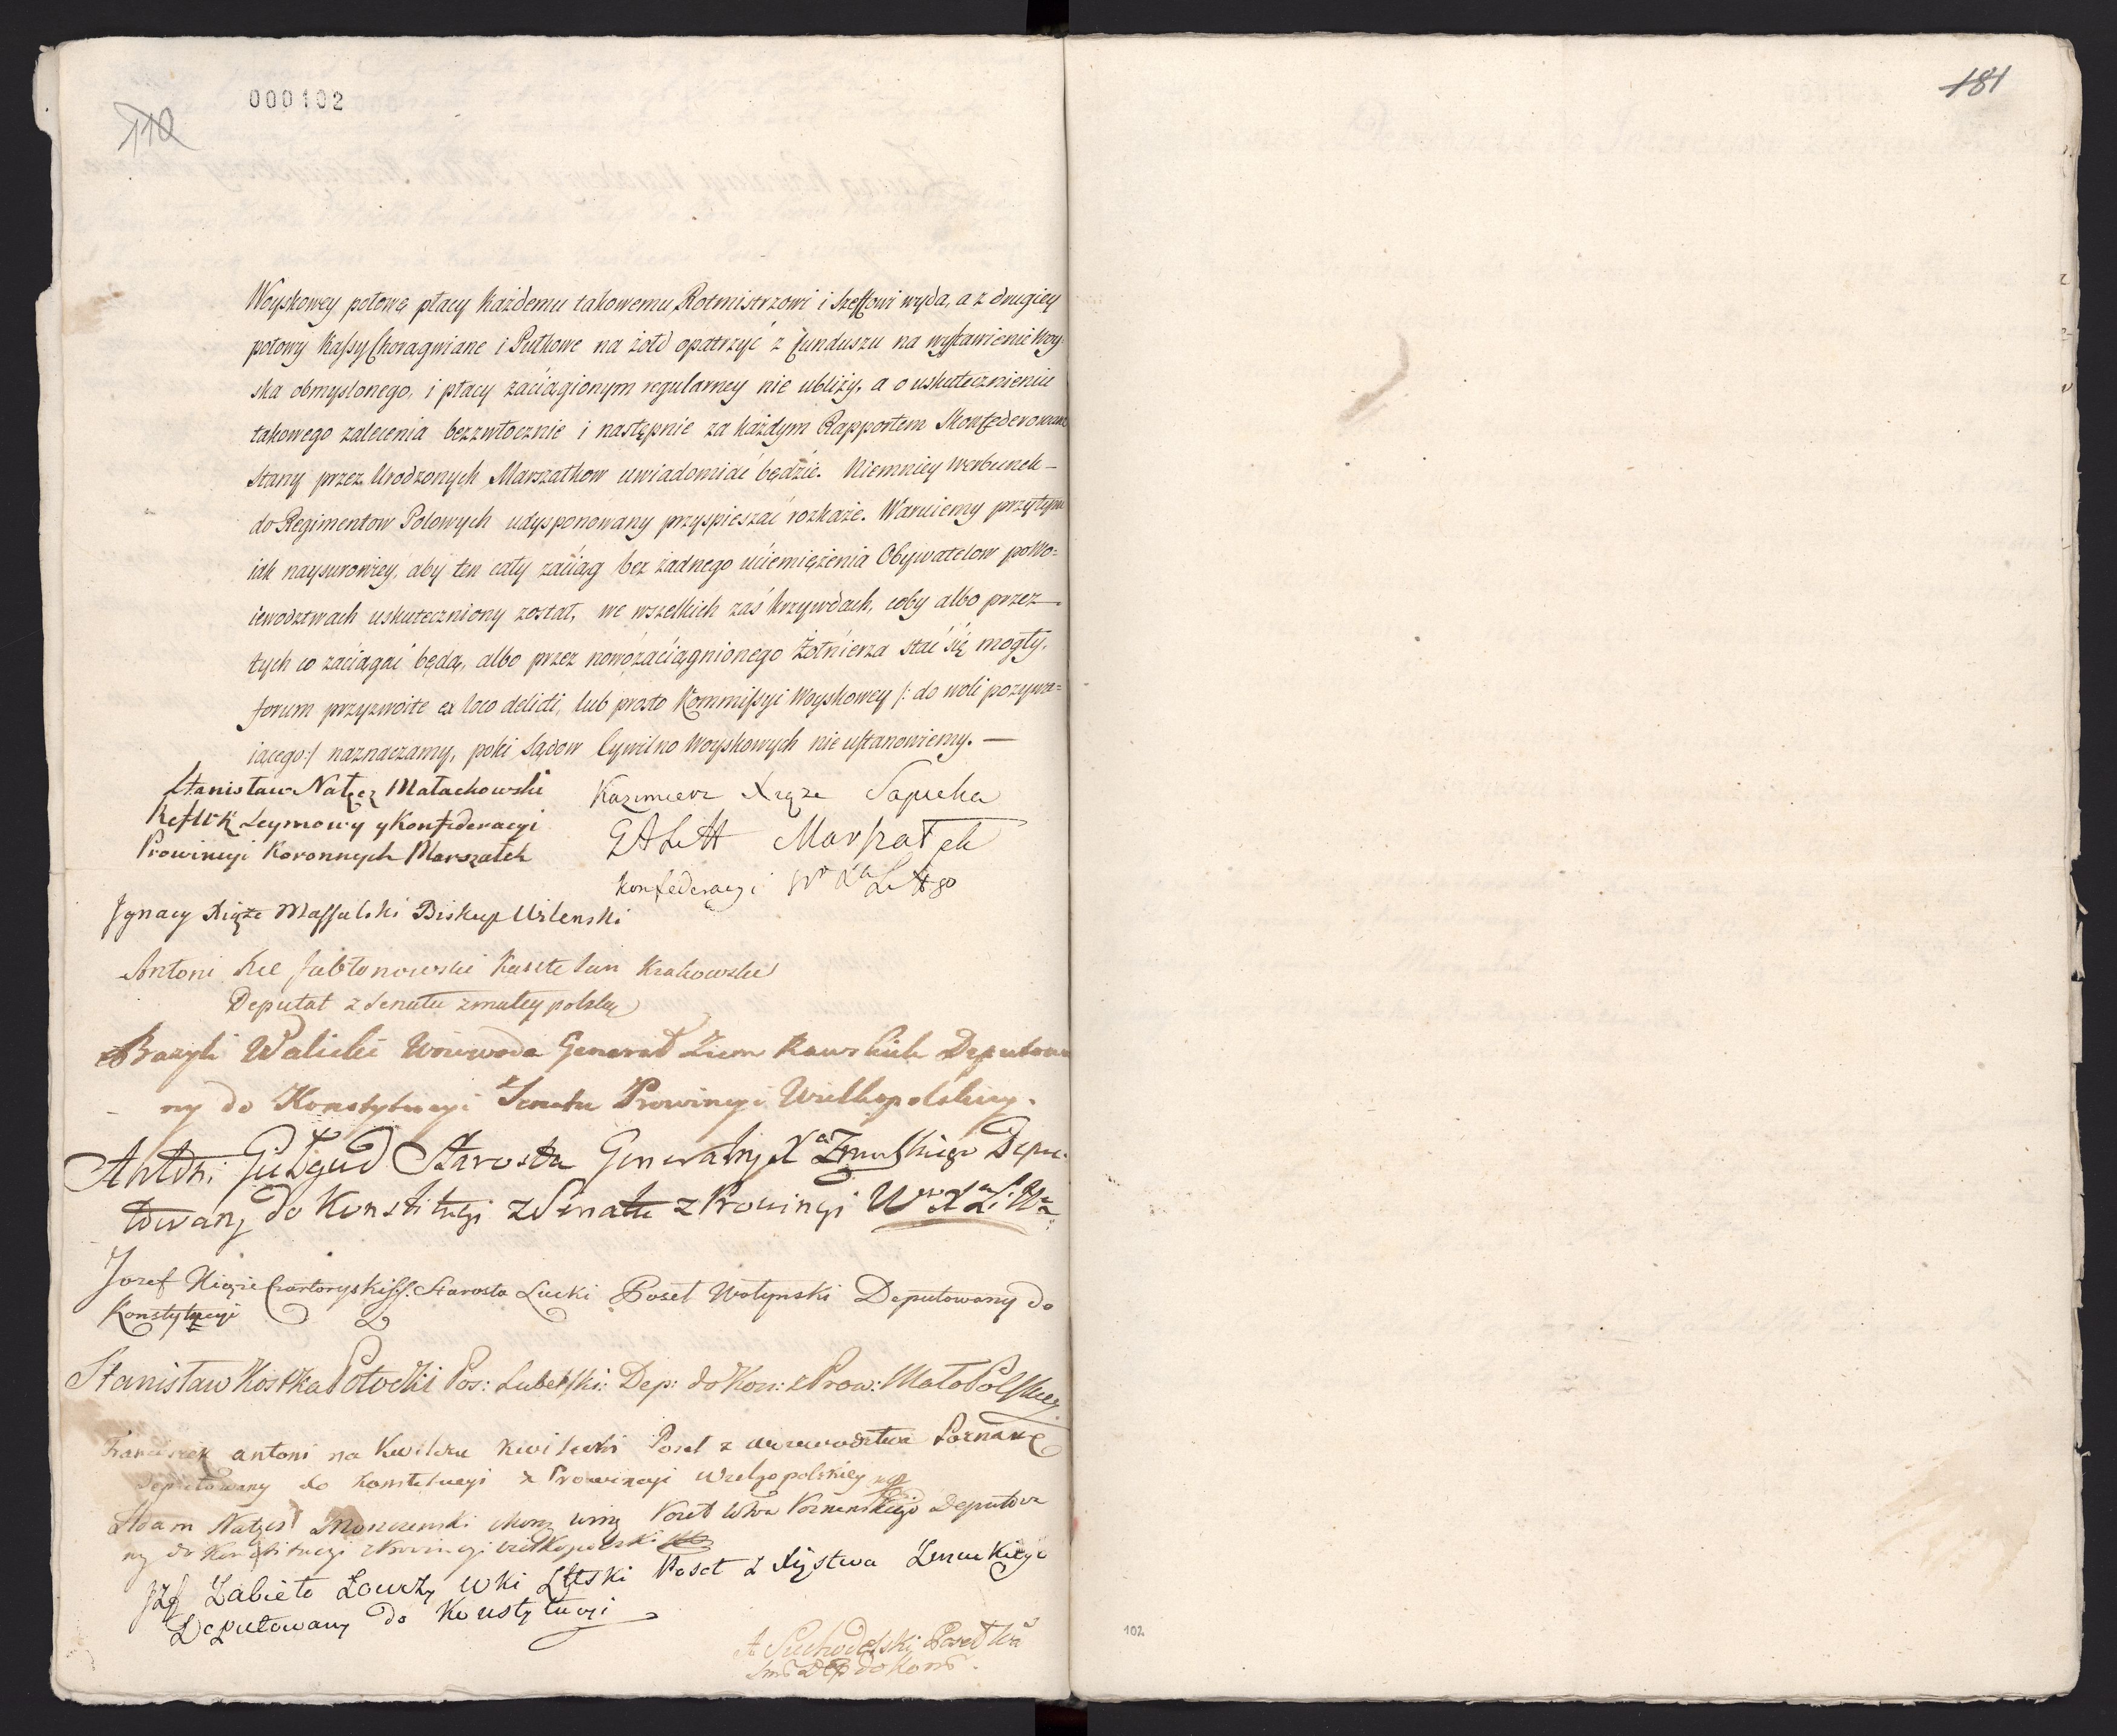 000102
110
181
Woyskowey połowę płacy każdemu takowemu Rotmistrzowi i Szeffowi wyda, a z drugiey
połowy Kassy Chorągwiane i Pułkowe na żołd opatrzyć z funduszu na wystawienie Woy-
ska obmyslonego, i płacy zaciągionym regularney nie ubliży, a o uskutecznieniu
takowego zalecenia bezzwłocznie i następnie za każdym Rapportem Skonfederowane
Stany przez Urodzonych Marszałkow uwiadomiać będzie. Niemniey werbunek
do Regimentow Polowych udysponowany przyspieszać rozkaże. Waruiemy przytym
iak naysurowiey, aby ten cały zaciąg bez żadnego uciemiężenia Obywatelow po Wo=
iewodztwach uskuteczniony został, we wszelkich zaś krzywdach, coby albo przez
tych co zaciągać będą, albo przez nowozaciągnionego Żołnierza stać się mogły,
forum przyzwoite ex loco delicti, lub prosto Kommissyi Woyskowey /: do woli pozywa=
iącego :/ naznaczamy, poki Sądow Cywilno Woyskowych nie ustanowiemy. —
Stanisław Nałęcz Małachowski
R: W K Seymowy y Konfederacyi
Prowincyi Koronnych Marszałek
Kazimierz Xiąże Sapieha
G A L Marszałek
Konfederacyi W Xa Litt go
Ignacy Xiąże Massalski Biskup Wilenski
Antoni Xże Jabłonowski Kasztelan Krakowski
Deputat z Senatu z małey polski
Bazyli Walicki Woiewoda Generał Ziem Rawskich Deputowa
ny do Konstytucyi z Senatu Prowincyi Wielkopolskiey.
Antoni Giełgud Starosta Generalny Xa Zmudzkiego Depu-
towany do Konstitucyi z Senatu z Prowincyi W X Li
Jozef Xiąże Czartoryski Starosta Łucki Poseł Wołynski Deputowany do
Konstytucyi
Stanisław Kostka Potocki Pos: Lubelski: Dep: do Kon: z Prow: Mało Polskiey
Franciszek antoni na Kwilczu Kwilecki Poseł z woiewodztwa Poznans
Deputowany do Konstitucyi z Prowincyi Wielgopolskiey
Adam Nałęcz Moszczenski Poseł Wdwa Poznanskiego Deputowa
ny do Konstitucyi z Prowincyi wielkopolski
Jzf Zabiełło Łowczy Wki Littski Poseł z Xięstwa Zmudzkiego
Deputowany do Konstytucyi
A Suchodolski Poseł Wa
Sm Dep do Kons.
102